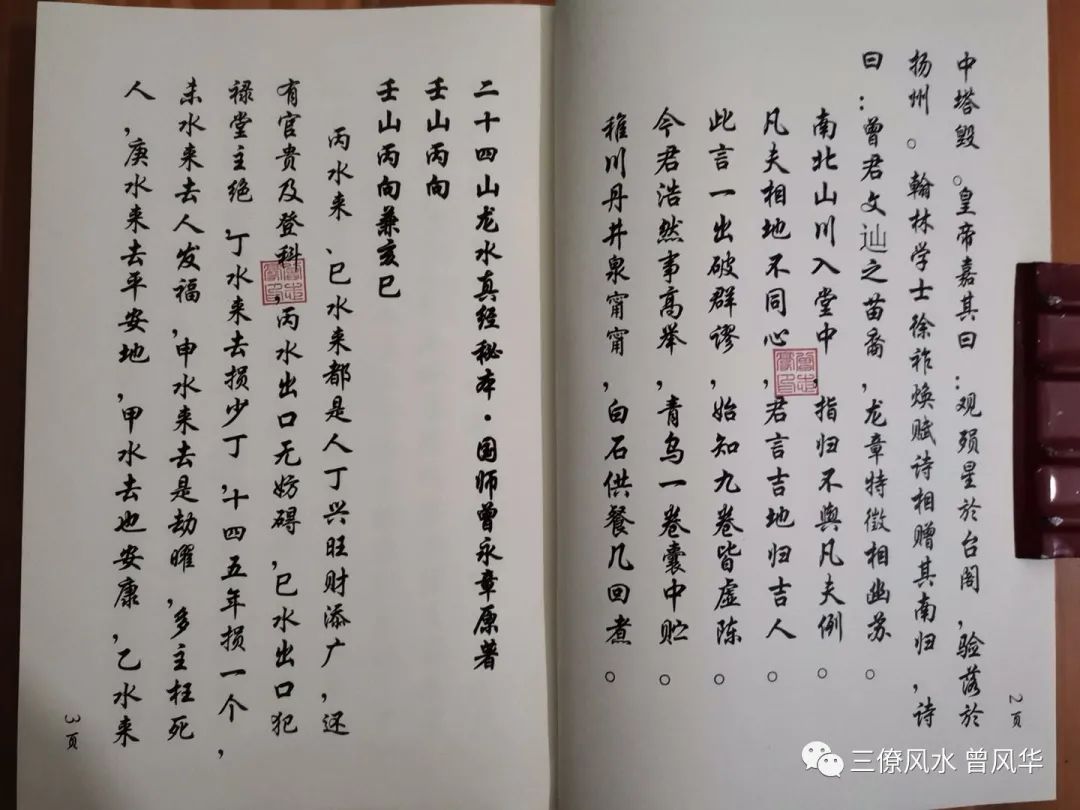 中塔毁。皇帝嘉其曰:观殒星於台阁,验落於
扬州。翰林学士徐祚焕赋诗相赠其南归,诗
曰:曾君文辿之苗裔,龙章特徵相幽苏。
南北山川入堂中,指归不與凡夫例。
凡夫相地不同心,君言吉地归吉人。
此言一出破群谬,始知九卷皆虚陈。
今君浩然事高举,青乌一卷囊中贮。
稚川丹井泉甯甯,白石供餐几回煮。
2页
二十四山龙水真经秘本·国师曾永章原著
壬山丙向
壬山丙向兼亥巳
丙水来、巳水来都是人丁兴旺财添广,还
有官贵及登科,丙水出口无妨碍,巳水出口犯
禄堂主绝,丁水来去损少丁,十四五年损一个,
未水来去人发福,申水来去是劫曜,多主枉死
人,庚水来去平安地,甲水去也安康,乙水来
3页
三僚风水 曾风华